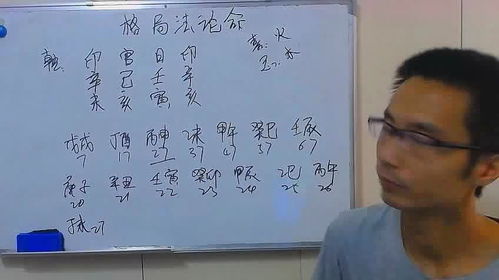 格局法论命
乾: 印 官 日 印
辛 己 壬 辛
未 亥 寅 亥
喜: 火
忌: 水
戊戌 丁酉 丙申 乙未 甲午 癸巳 壬辰
7 17 27 37 47 57 67
庚子 辛丑 壬寅 癸卯 甲辰 乙巳 丙午
20 21 22 23 24 25 26
丁未 27